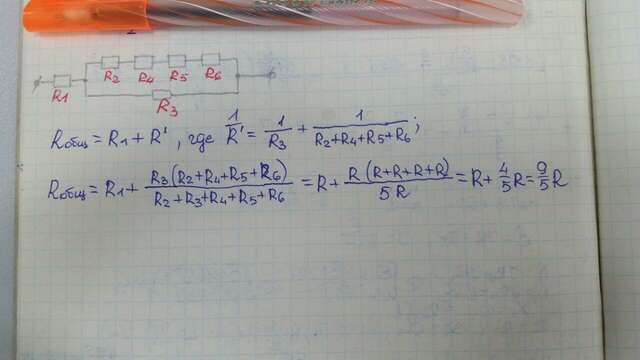 R2 R4 R5 R6
R1
R3
Rобщ = R1 + R' , где 1/R' = 1/R3 + 1/(R2+R4+R5+R6) ;
Rобщ = R1 + R3(R2+R4+R5+R6)/(R2+R3+R4+R5+R6) = R + R(R+R+R+R)/5R = R + 4/5 R = 9/5 R